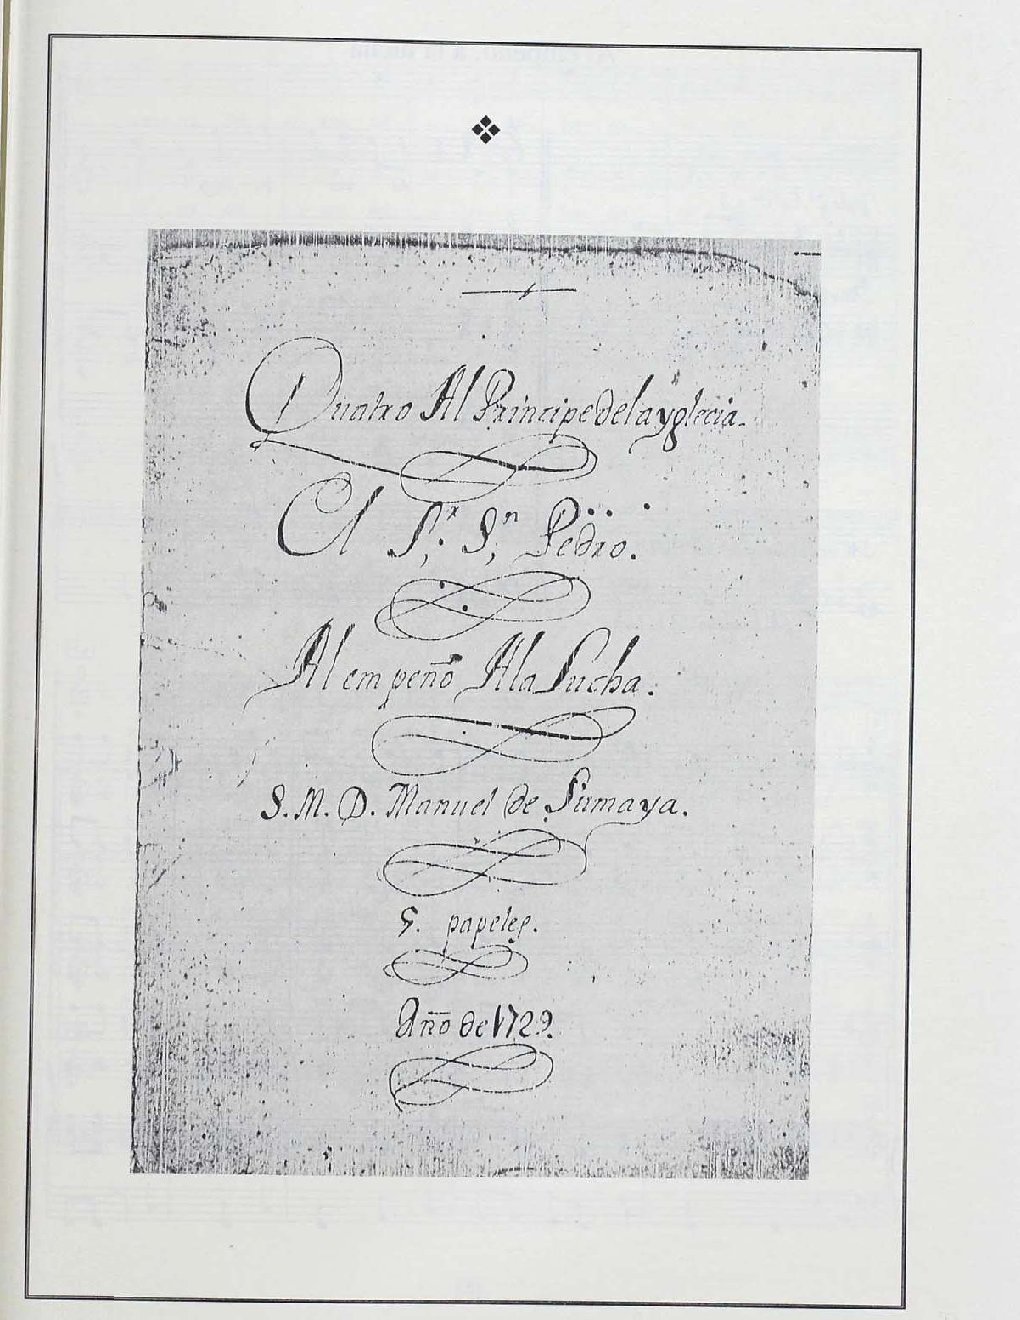 Quatro Al Principe de la yglecia.
El Sr. Sn Pedro.
Al empeño A la Lucha.
S. M. D. Manuel de Sumaya.
5. papeles.
Año de 1729.